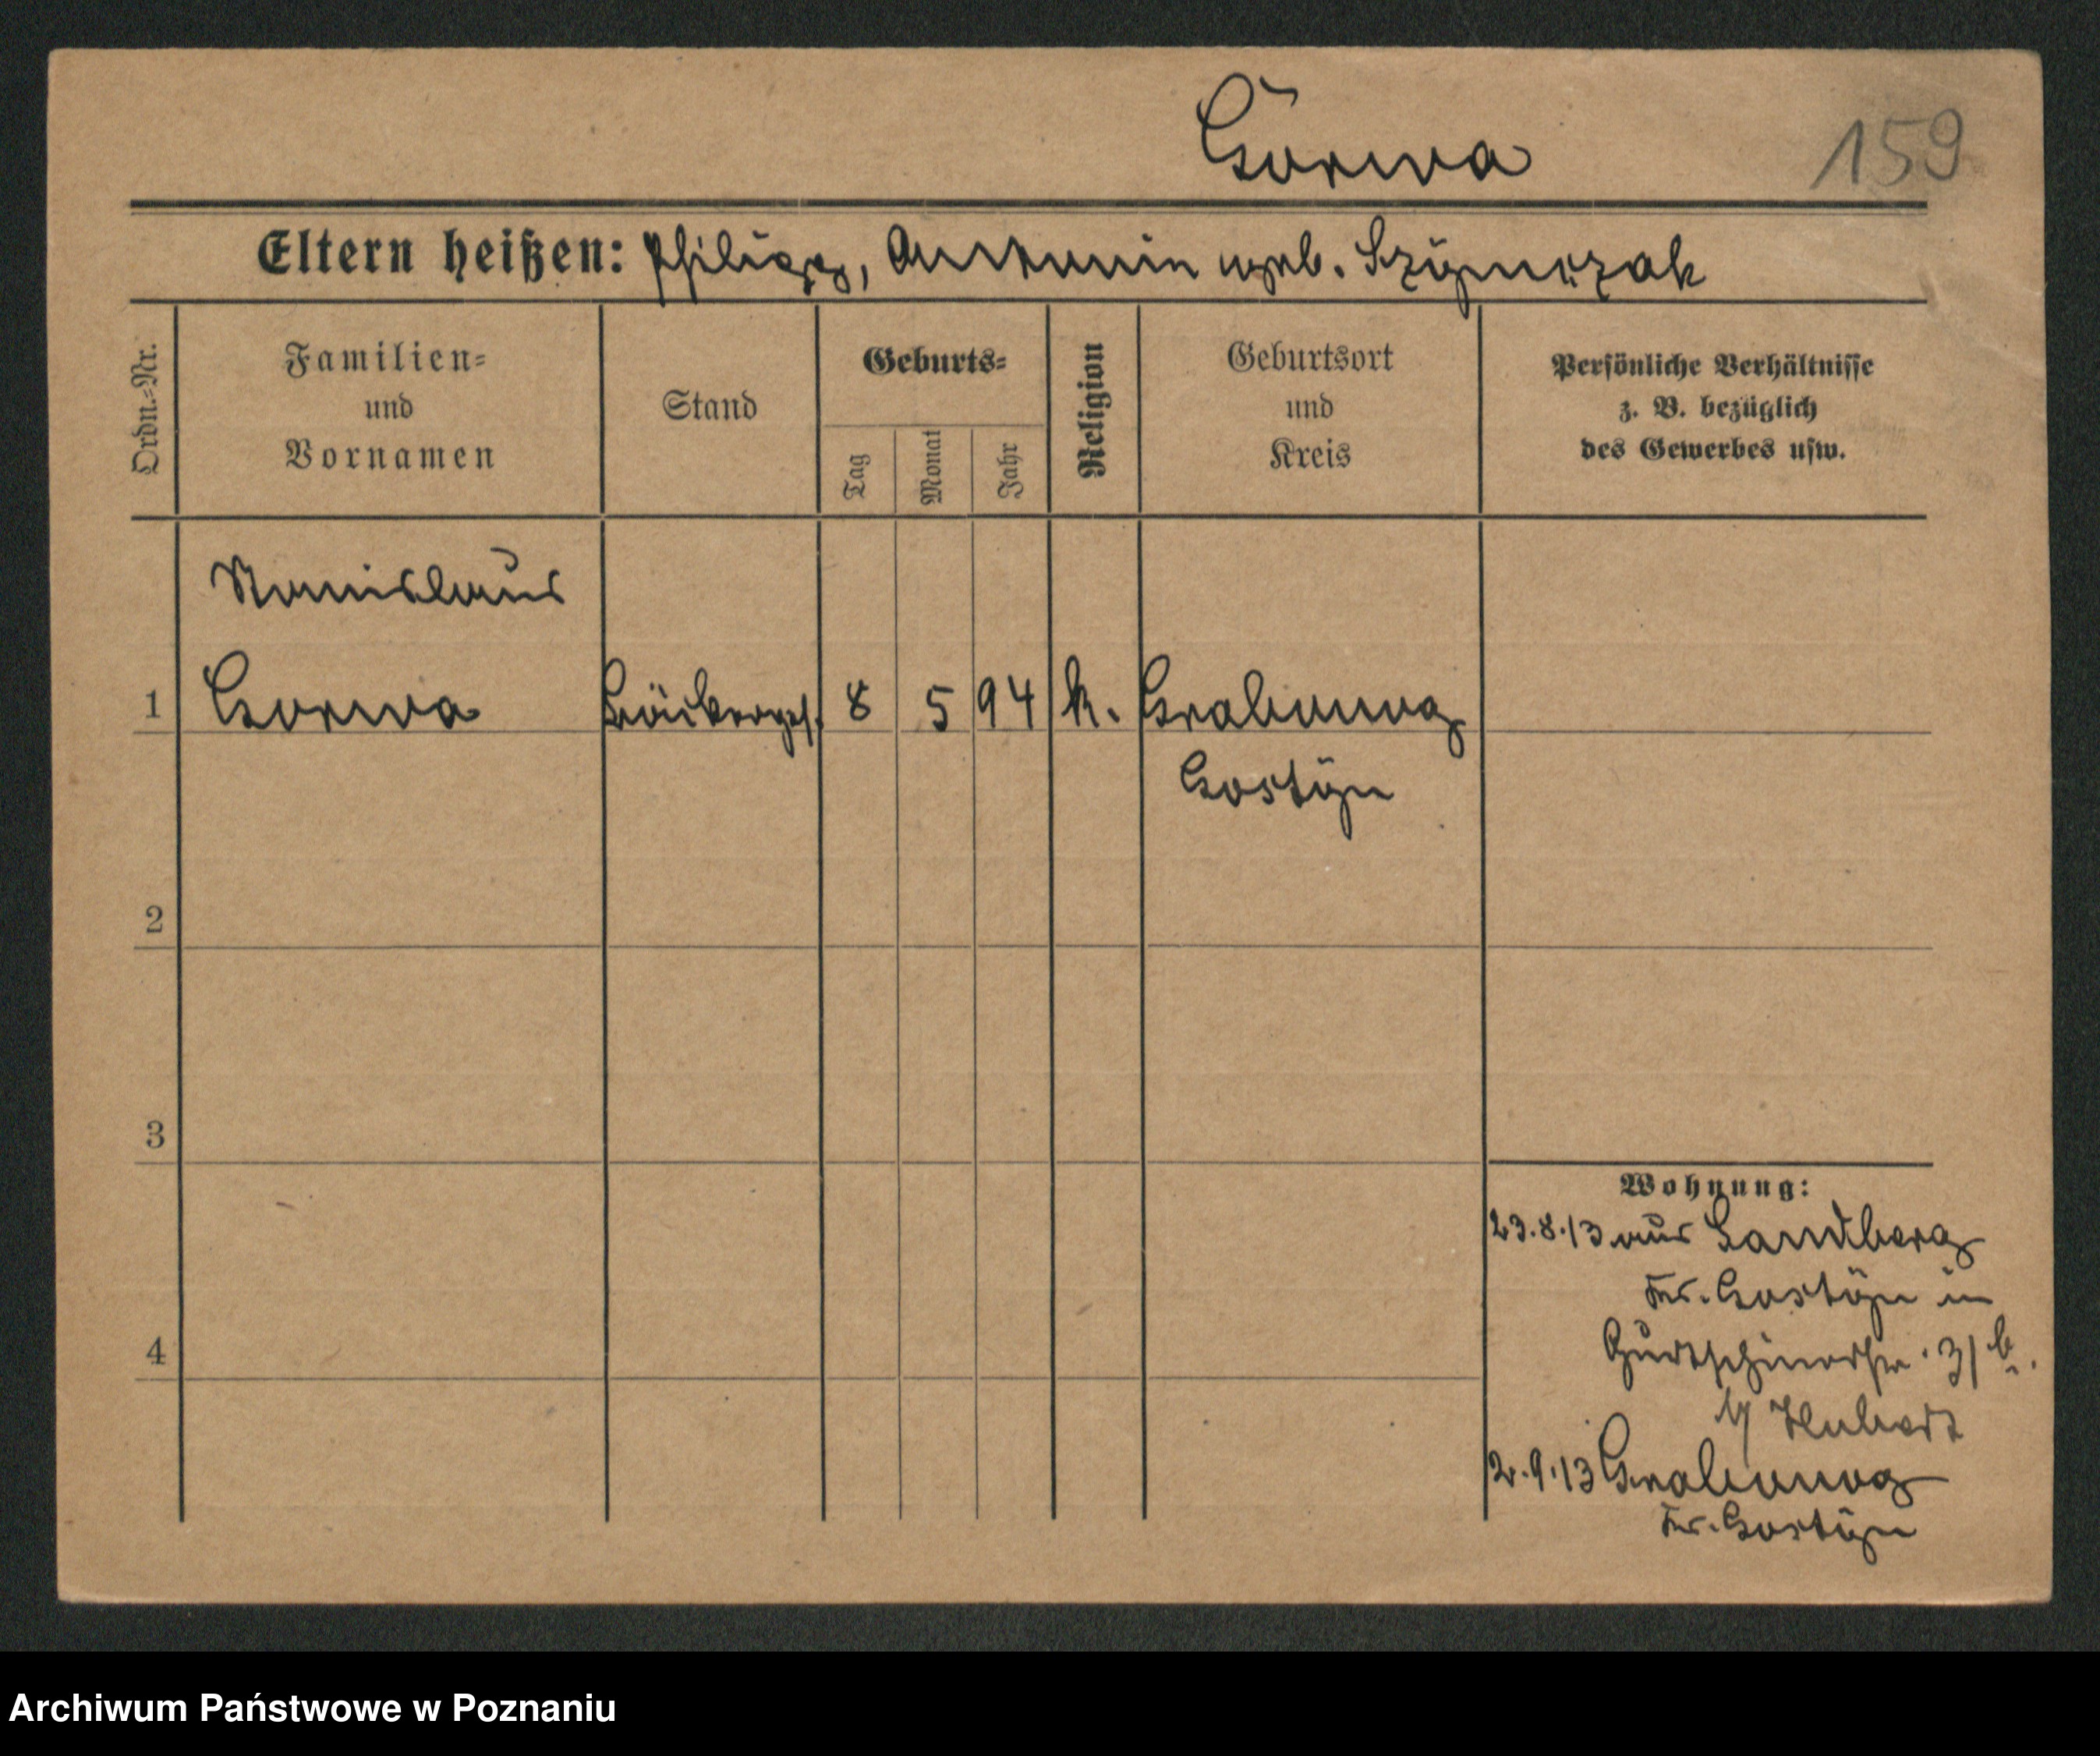 Górwa
159
Eltern heißen: Philipp, Antonin geb. Szymczak
Ordn.-Nr.
Familien-
und
Vornamen
Stand
Geburts-
Tag
Monat
Jahr
Religion
Geburtsort
und
Kreis
Persönliche Verhältnisse
z. B. bezüglich
des Gewerbes usw.
Stanislaus
1 Gorwa Bäckerges. 8 5 94 k. Grabonog
Gostyn
2
3
4
Wohnung:
23.8.13 aus Sandberg
Kr. Gostyn in
Gurtschinerstr. 31 b.
b/ Hubert
2.9.13 Grabonog
Kr. Gostyn
Archiwum Państwowe w Poznaniu